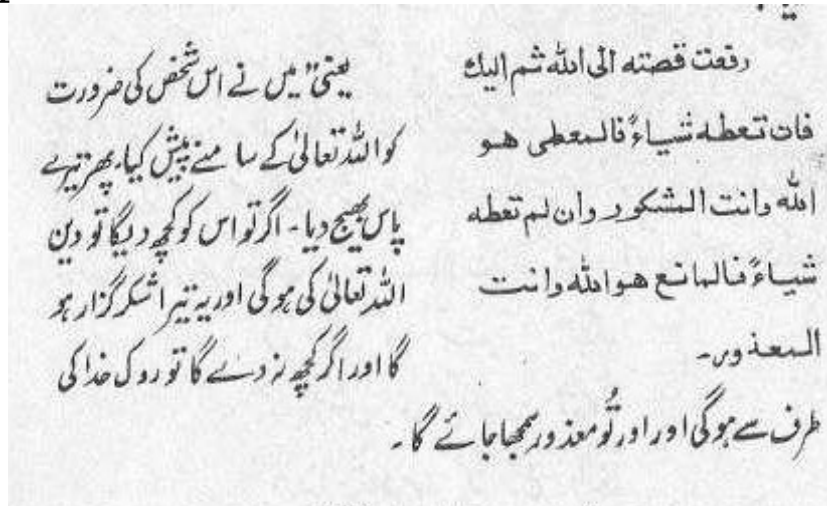 رفعت قصته الی الله ثم الیك
فان تعطه شیاءً فالمعطی هو
الله وانت المشکور وان لم تعطه
شیاءً فالمانع هو الله وانت
المعذور۔
یعنی "میں نے اس شخص کی ضرورت
کو اللہ تعالیٰ کے سامنے پیش کیا۔ پھر تیرے
پاس بھیج دیا۔ اگر تو اس کو کچھ دیگا تو دین
اللہ تعالیٰ کی ہوگی اور یہ تیرا شکر گزار ہو
گا اور اگر کچھ نہ دے گا تو روک خدا کی
طرف سے ہوگی اور اور تُو معذور سمجھا جائے گا۔